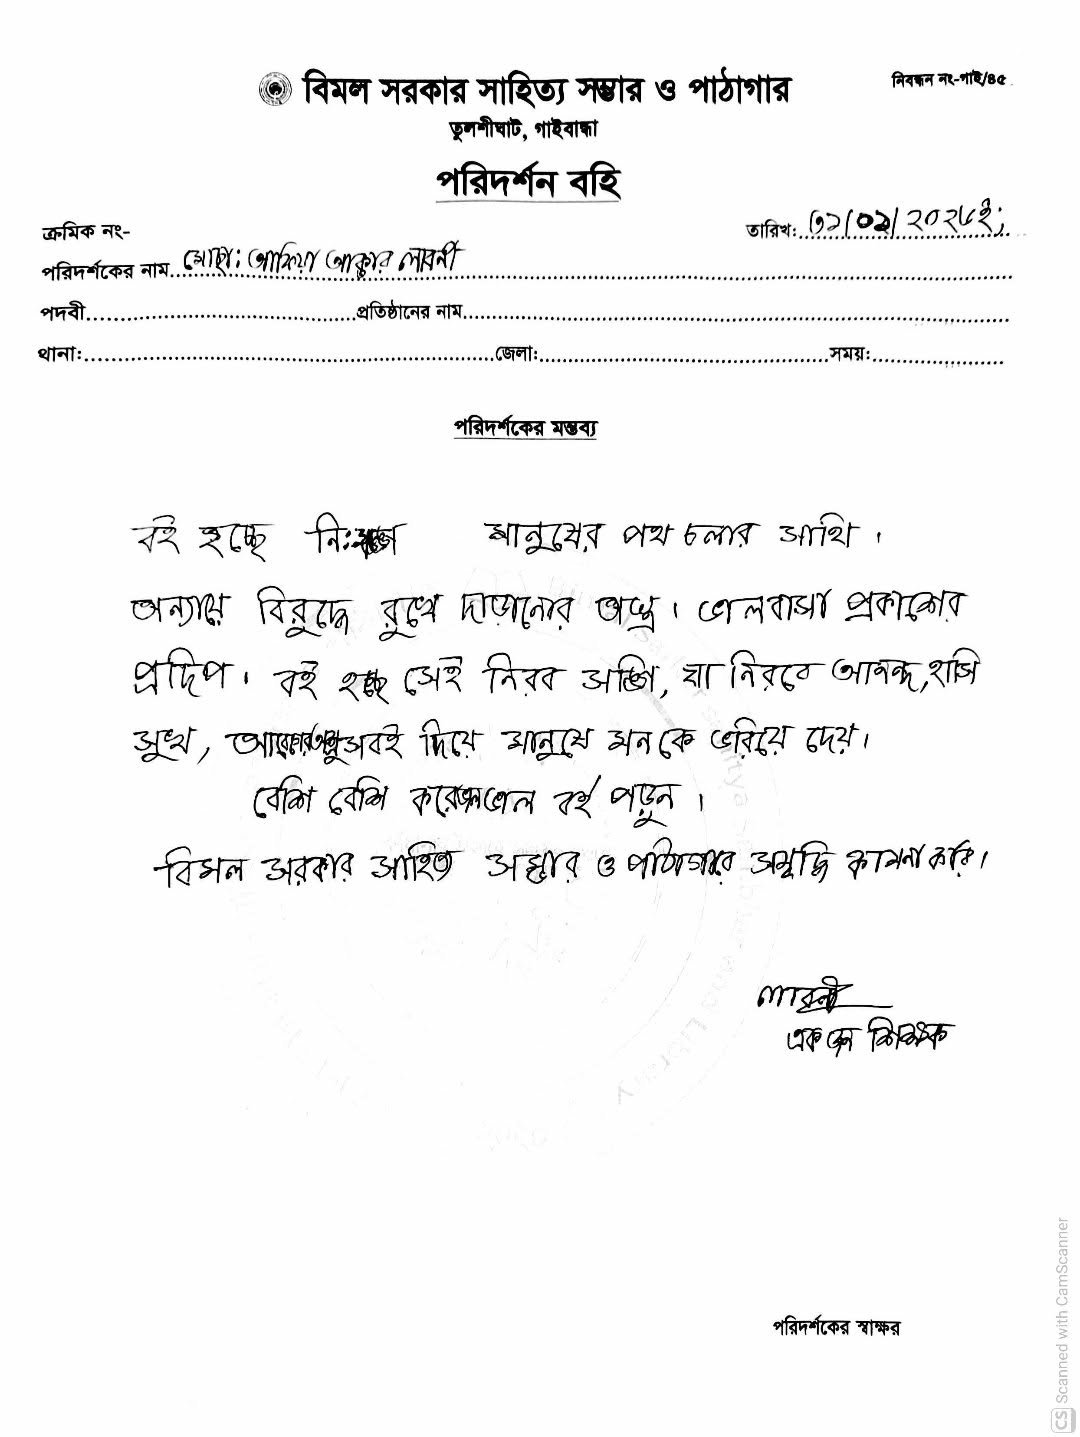 বিমল সরকার সাহিত্য সম্ভার ও পাঠাগার
নিবন্ধন নং-গাই/৪৫
তুলশীঘাট, গাইবান্ধা
পরিদর্শন বহি
ক্রমিক নং-
তারিখ:
পরিদর্শকের নাম মোছা: আফিয়া আক্তার লাবনী
পদবী প্রতিষ্ঠানের নাম
থানা: জেলা: সময়:
পরিদর্শকের মন্তব্য
বই হচ্ছে মানুষের পথ চলার সাথি ।
অন্যায়ে বিরুদ্ধে রুখে দাড়ানোর অস্ত্র । ভালবাসা প্রকাশের
প্রদিপ । বই হচ্ছে সেই নিরব সঙ্গি, যা নিরবে আনন্দ, হাসি
সুখ, সবই দিয়ে মানুষে মনকে ভরিয়ে দেয় ।
বেশি বেশি করে বই পড়ুন ।
বিমল সরকার সাহিত্য সম্ভার ও পাঠাগারে সমৃদ্ধি কামনা করি ।
লাবনী
একজন শিক্ষক
পরিদর্শকের স্বাক্ষর
CS Scanned with CamScanner